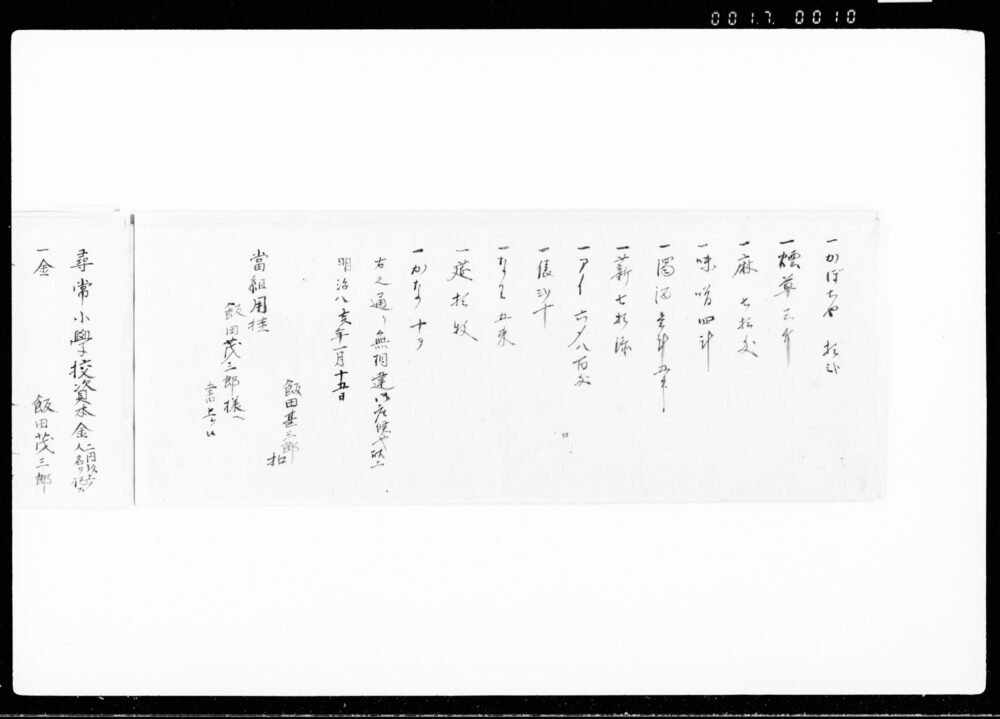 001.7. 0010
一かぼちや 拾
一煙草 三斤
一麻 七拾文
一味噌 四斗
一濁酒 壱斗五升
一薪 七拾
一 六〆八百文
一俵 三十
一 五束
一莚 拾枚
一かな 十
右之通り無相違御座候也 以上
明治八亥年一月十五日
飯田甚三郎
當組用掛
飯田茂三郎様へ
書上ケ
尋常小學校資本金 二円以上 人名
一金 飯田茂三郎